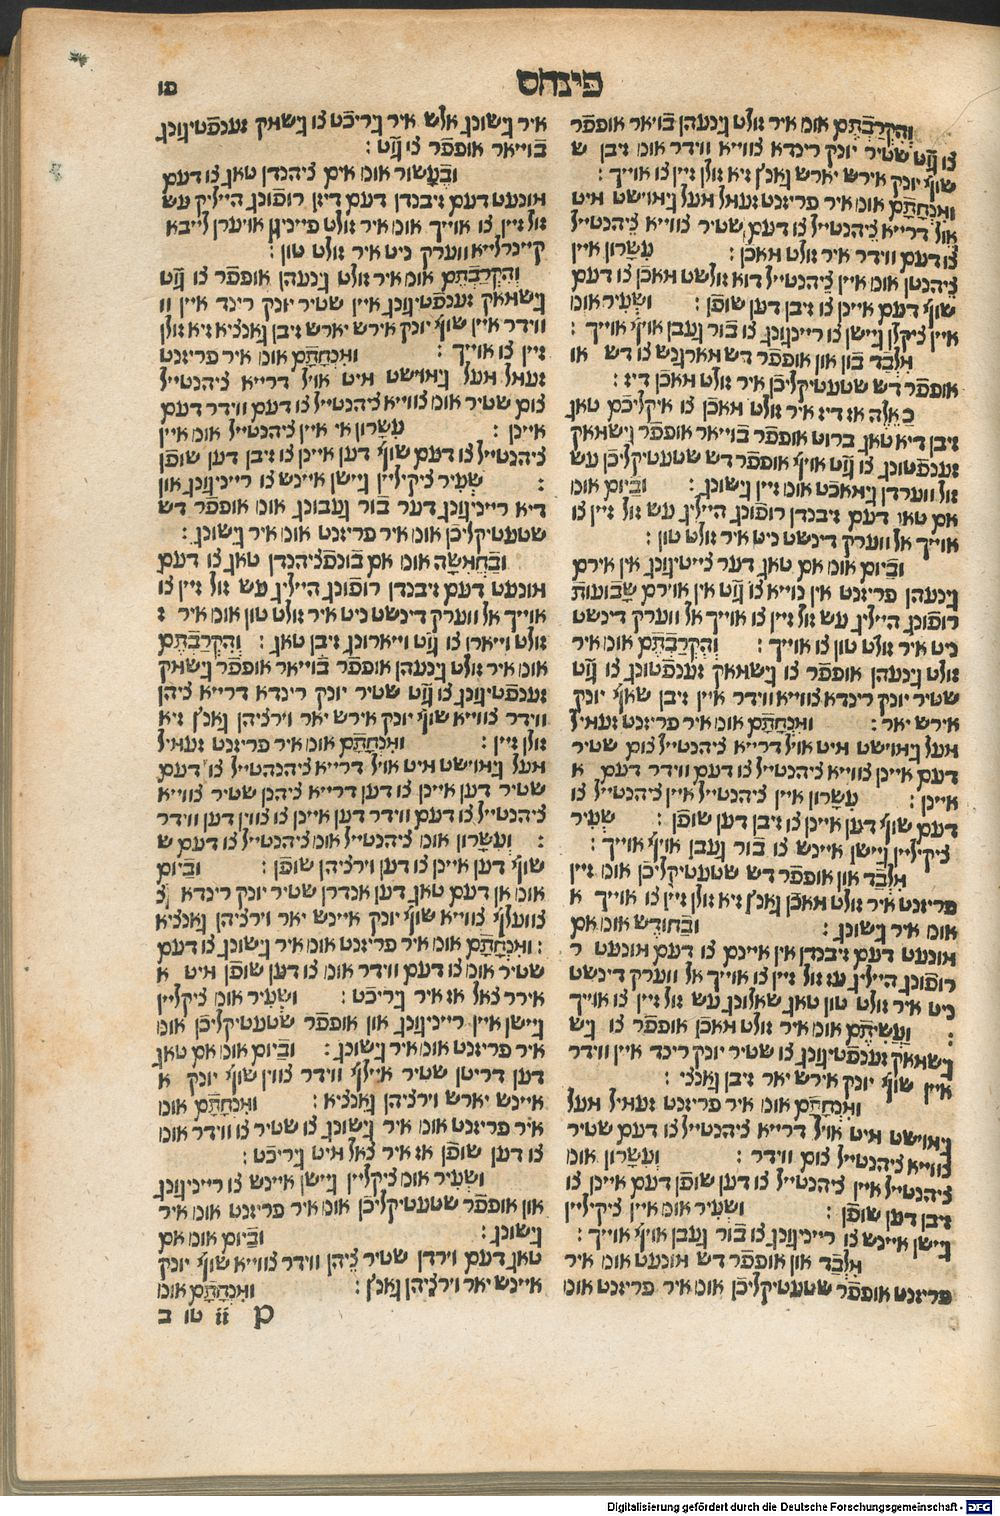 פינחס
פו
וְהִקְרַבְתֶּם אונ איר זולט גינעהן בויאר אופפֿר
צו גֿוֹט שטיר יונק רינדא צווייא ווידר אונ זיבן ש
שוף יונק אירש יארש גאנץ זיא זולן זיין צו אוייך :
וּמִנְחָתָם אונ איר פריזנט זעמל מעל גימוישט מיט
אול דרייא ציהנטייל צו דעם שטיר צווייא ציהנטייל
צו דעם ווידר איר זולט מאכֿן : עִשָרוֹן איין
ציהנטן אונ איין ציהנטייל דוא זולשט מאכֿן צו דעם
שוף דעם איינן צו זיבן דען שופֿן : וּשְעִיר אונ
איין ציקלן גיישן צו רייניגונג צו בֿור געבן אויף אוייך :
מִלְבַד בֿון און אופפֿר דש מארגנש צו דש או
אופפֿר דש שטעטיקליכֿן איר זולט מאכֿן דיז :
כָאֵלֶה אז דיז איר זולט מאכֿן צו איקליכֿם טאג
זיבן דיא טאג ברוט אופפֿר בֿוייאר אופפֿר גישמאק
זענפֿטונג צו גֿוֹט אויף אופפֿר דש שטעטיקליכֿן עש
זול ווערדן גימאכֿט אונ זיין גישונג : וּבַיוֹם אונ
אם טאג דעם זיבנדן רופֿונג היילין עש זול זיין צו
אוייך אל ווערק דינשט ניט איר זולט טון :
וּבְיוֹם אונ אם טאג דער צייטיגונג אין אירם
גינעהן פריזנט אין נוייא צו גֿוֹט אין אוירם שָבוּעוֹת
רופֿונג היילין עש זול זיין צו אוייך אל ווערק דינשט
ניט איר זולט טון צו אוייך : וְהִקְרַבְתֶּם אונ איר
זולט גינעהן אופפֿר צו גישמאק זענפֿטונג צו גֿוֹט
שטיר יונק רינדא צווייא ווידר איין זיבן שאוף יונק
אירש יאר : וּמִנְחָתָם אונ איר פריזנט זעמיל
מעל גימוישט מיט אויל דרייא ציהנטייל צום שטיר
דעם איינן צווייא ציהנטייל צו דעם ווידר דעם א
איינן : עִשָרוֹן איין ציהנטייל איין ציהנטייל צו
דעם שוף דען איינן צו זיבן דען שופֿן : שְעִיר
ציקיליין גיישן איינש צו בֿור געבן אויף אוייך :
מִלְבַד און אופפֿר דש שטעטיקליכֿן אונ זיין
פריזנט איר זולט מאכֿן גאנץ זיא זולן זיין צו אוייך א
אונ איר גישונג : וּבַחוֹדֶש אונ אם
מונעט דעם זיבנדן אין איינם צו דעם מונעט ר
רופֿונג היילין עז זול זיין צו אוייך אל ווערק דינשט
ניט איר זולט טון טאג שאלונג עש זול זיין צו אוייך
: וַעֲשִיתֶם אונ איר זולט מאכֿן אופפֿר צו גיש
גישמאק זענפֿטיגונג צו שטיר יונק רינד איין ווידר
איין שוף יונק אירש יאר זיבן גאנצי :
וּמִנְחָתָם אונ איר פריזנט זעמיל מעל
גימוישט מיט אויל דרייא ציהנטייל צו דעם שטיר
צווייא ציהנטייל צום ווידר : וְעִשָרוֹן אונ
ציהנטייל איין ציהנטייל צו דען שופֿן דעם איינן צו
זיבן דען שופֿן : וּשְעִיר אונ איין ציקיליין
גיישן איינש צו רייניגונג צו בֿור געבן אויף אוייך :
מִלְבַד און אופפֿר דש מונעט אונ איר
פריזנט אופפֿר שטעטיקליכֿן אונ איר פריזנט אונ
איר גישונג אלש איר גיריכֿט צו גישמק זענפֿטיגונג
בֿוייאר אופפֿר צו גֿוֹט :
וּבֶעָשוֹר אונ אים ציהנדן טאג צו דעם
מונעט דעם זיבנדן דעם דיזן רופֿונג היילין עש
זול זיין צו אוייך אונ איר זולט פייניגן אויערן לייבא
קיינרלייא ווערק ניט איר זולט טון :
וְהִקְרַבְתֶּם אונ איר זולט גינעהן אופפֿר צו גֿוֹט
גישמאק זענפֿטיגונג איין שטיר יונק רינד איין וו
ווידר איין שוף יונק אירש יארש זיבן גאנציא זיא זולן
זיין צו אוייך : וּמִנְחָתָם אונ איר פריזנט
זעמל מעל גימוישט מיט אויל דרייא ציהנטייל
צום שטיר אונ צווייא ציהנטייל צו דעם ווידר דעם
איינן : עִשָרוֹן אי איין ציהנטייל אונ איין
ציהנטייל צו דעם שוף דען איינן צו זיבן דען שופֿן
: שְעִיר ציקיליין גיישן איינש צו רייניגונג און
דיא רייניגונג דער בֿור געבונג אונ אופפֿר דש
שטעטיקליכֿן אונ איר פריזנט אונ איר גישונג :
וּבַחֲמִשָה אונ אם בֿונפֿציהנדן טאג צו דעם
מונעט דעם זיבנדן רופֿונג היילין עש זול זיין צו
אוייך אל ווערק דינשט ניט איר זולט טון אונ איר ז
זולט ויארן צו גֿוֹט וייארונג זיבן טאג : וְהִקְרַבְתֶּם
אונ איר זולט גינעהן אופפֿר בֿוייאר אופפֿר גישמק
זענפֿטיגונג צו גֿוֹט שטיר יונק רינדא דרייא ציהן
ווידר צווייא שוף יונק אירש יאר וירציהן גאנץ זיא
זולן זיין : וּמִנְחָתָם אונ איר פריזנט זעמיל
מעל גימוישט מיט אויל דרייא ציהנהטייל צו דעם
שטיר דען איינן צו דען דרייא ציהנן שטיר צווייא
ציהנטייל צו דעם ווידר דען איינן צו צווין דען ווידר
: וְעִשָרוֹן אונ ציהנטייל אונ ציהנטייל צו דעם ש
שוף דען איינן צו דען וירציהן שופֿן : וּבַיוֹם
אונ אן דעם טאג דען אנדרן שטיר יונק רינדא צ
צוועלף צווייא שוף יונק איינש יאר וירציהן גאנציא
: וּמִנְחָתָם אונ איר פריזנט אונ איר גישונג צו דעם
שטיר אונ צו דעם ווידר אונ צו דען שופֿן מיט א
אירר צאל אז איר גיריכֿט : וּשְעִיר אונ ציקליין
גיישן איין רייניגונג און אופפֿר שטעטיקליכֿן אונ
איר פריזנט אונ איר גישונג : וּבַיוֹם אונ אם טאג
דען דריטן שטיר איילף ווידר צווין שוף יונק א
איינש יארש וירציהן גאנציא : וּמִנְחָתָם אונ
איר פריזנט אונ איר גישונג צו שטיר צו ווידר אונ
צו דען שופֿן אז איר צאל מיט גיריכֿט :
וּשְעִיר אונ ציקליין גיישן איינש צו רייניגונג
און אופפֿר שטעטיקליכֿן אונ איר פריזנט אונ איר
גישונג : וּבַיוֹם אונ אם
טאג דעם וירדן שטיר ציהן ווידר צווייא שוף יונק
איינש יאר וירציהן גאנץ : וּמִנְחָתָם אונ
p ii טו ב
Digitalisierung gefördert durch die Deutsche Forschungsgemeinschaft - DFG